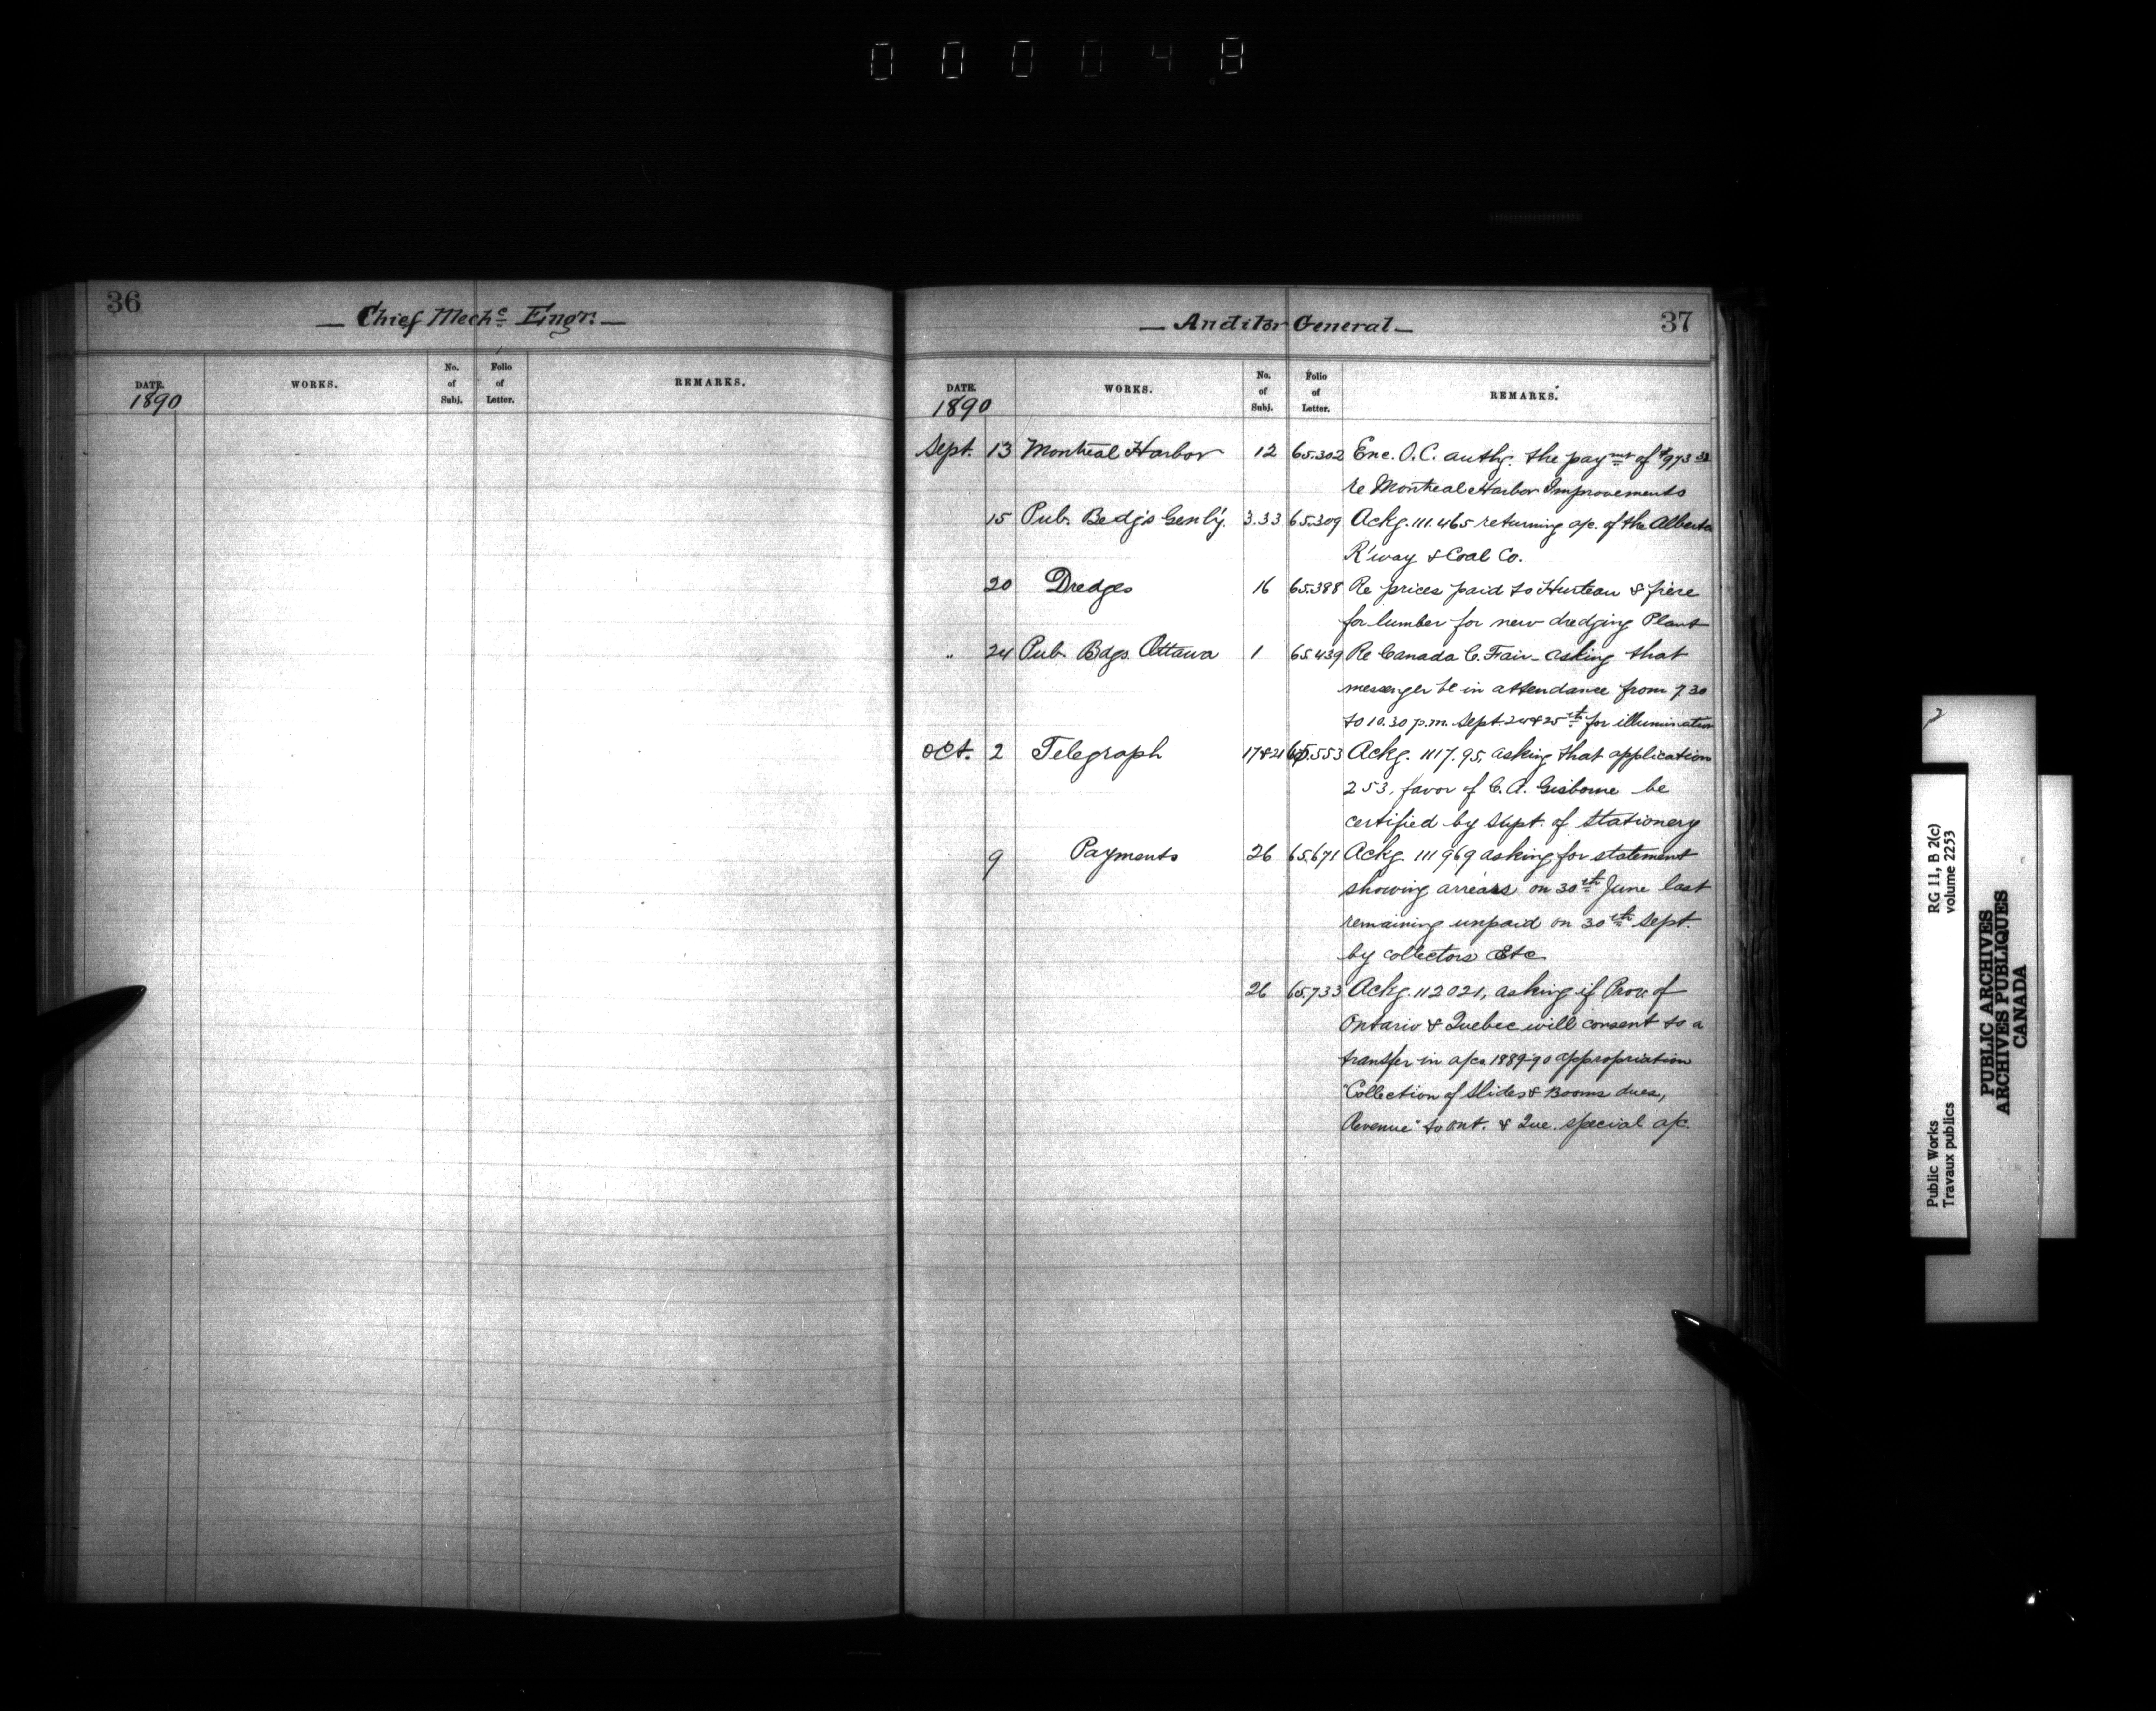 000048
36
— Chief Mechc Engr. —
DATE. WORKS. No. of Subj. Folio of Letter. REMARKS.
1890
— Auditor General — 37
DATE. WORKS. No. of Subj. Folio of Letter. REMARKS.
1890
Sept. 13 Montreal Harbor 12 65.302 Enc. O.C. authg. the paymt of $973 32
re Montreal Harbor Improvements
15 Pub. Bedg's Genl'y. 3.33 65.309 Ackg. 111.465 returning a/c. of the Alberta
R'way & Coal Co.
20 Dredges 16 65.388 Re prices paid to Hurteau & frere
for lumber for new dredging Plant
" 24 Pub. Bdgs. Ottawa 1 65.439 Re Canada C. Fair - asking that
messenger be in attendance from 7.30
to 10.30 p.m. Sept. 24 & 25th for illumination
Oct. 2 Telegraph 17&21 65.553 Ackg. 1117.95, asking that application
253, favor of C. A. Gisborne be
certified by Supt. of Stationery
9 Payments 26 65.671 Ackg. 111969 asking for statement
showing arrears on 30th June last
remaining unpaid on 30th Sept.
by collectors Etc
26 65.733 Ackg. 112021, asking if Prov. of
Ontario & Quebec will consent to a
transfer in a/cs 1889-90 appropriation
"Collection of Slides & Booms dues,
Revenue" to Ont. & Que. special a/c.
2
Public Works RG 11, B 2(c)
Travaux publics volume 2253
PUBLIC ARCHIVES
ARCHIVES PUBLIQUES
CANADA